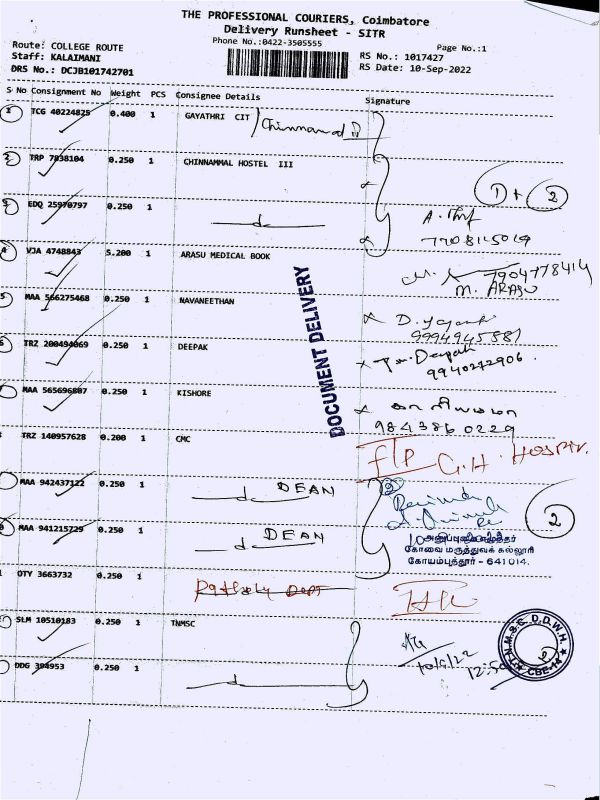 THE PROFESSIONAL COURIERS, Coimbatore
Delivery Runsheet - SITR
Phone No.:0422-3505555
Page No.:1
Route: COLLEGE ROUTE
Staff: KALAIMANI
DRS No.: DCJB101742701
RS No.: 1017427
RS Date: 10-Sep-2022
S No Consignment No Weight PCS Consignee Details Signature
1 TCG 40224825 0.400 1 GAYATHRI CIT
2 TRP 7838104 0.250 1 CHINNAMMAL HOSTEL III
1 + 2
3 EDQ 25970797 0.250 1
7708145019
4 VJA 4748843 5.200 1 ARASU MEDICAL BOOK
7904778414
M. ARASU
5 MAA 566275468 0.250 1 NAVANEETHAN
9994945881
6 TRZ 200494069 0.250 1 DEEPAK
Deepak
9940272906.
MAA 565696807 0.250 1 KISHORE
9843860229
DOCUMENT DELIVERY
TRZ 140957628 0.200 1 CMC
G.H. HOSPIT.
MAA 942437122 0.250 1 DEAN
2
MAA 941215729 0.250 1 DEAN
கோவை மருத்துவக் கல்லூரி
கோயம்புத்தூர் - 641 014.
OTY 3663732 0.250 1
SLM 10510183 0.250 1 TNMSC
10/9/22
12:50
T.N.M.S.C. D.D.W.H. CBE-14
DDG 394953 0.250 1